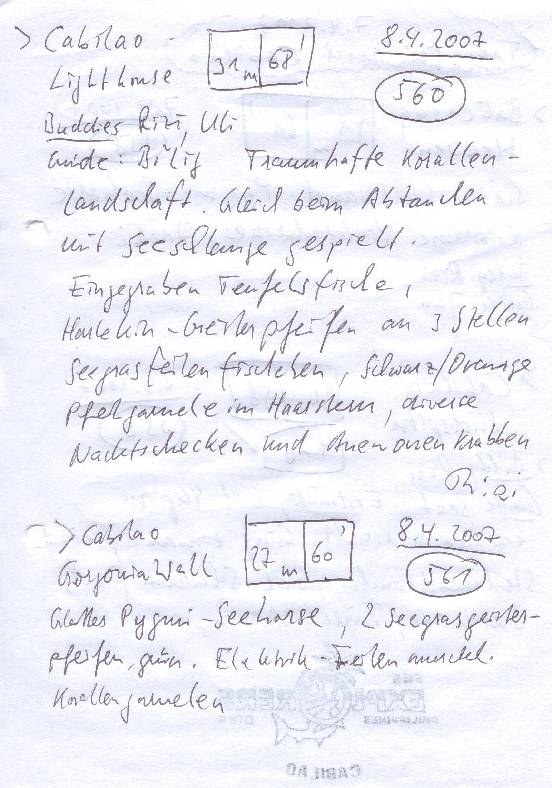 > Cabilao 31 m 68' 8.4.2007
Lighthouse 560
Buddies Rizi, Uli
Guide: Bilig Traumhafte Korallen-
landschaft. Gleich beim Abtauchen
mit Seeschlange gespielt.
Eingegraben Teufelsfische,
Harlekin-Geisterpfeifen an 3 Stellen
Seegrasfeilenfischchen, Schwarz/Orange
garnele im Haarstern, diverse
Nacktschecken und Anemonenkrabben
Rizi
> Cabilao 27 m 60' 8.4.2007
Gorgonia Wall 561
Pygmi-Seehorse, 2 Seegrasgeister-
pfeifen, grün. Elektrik-Feilenmuschel.
Korallengarnelen
SEA
EXPLORERS
PHILIPPINES DIVE
CABILAO